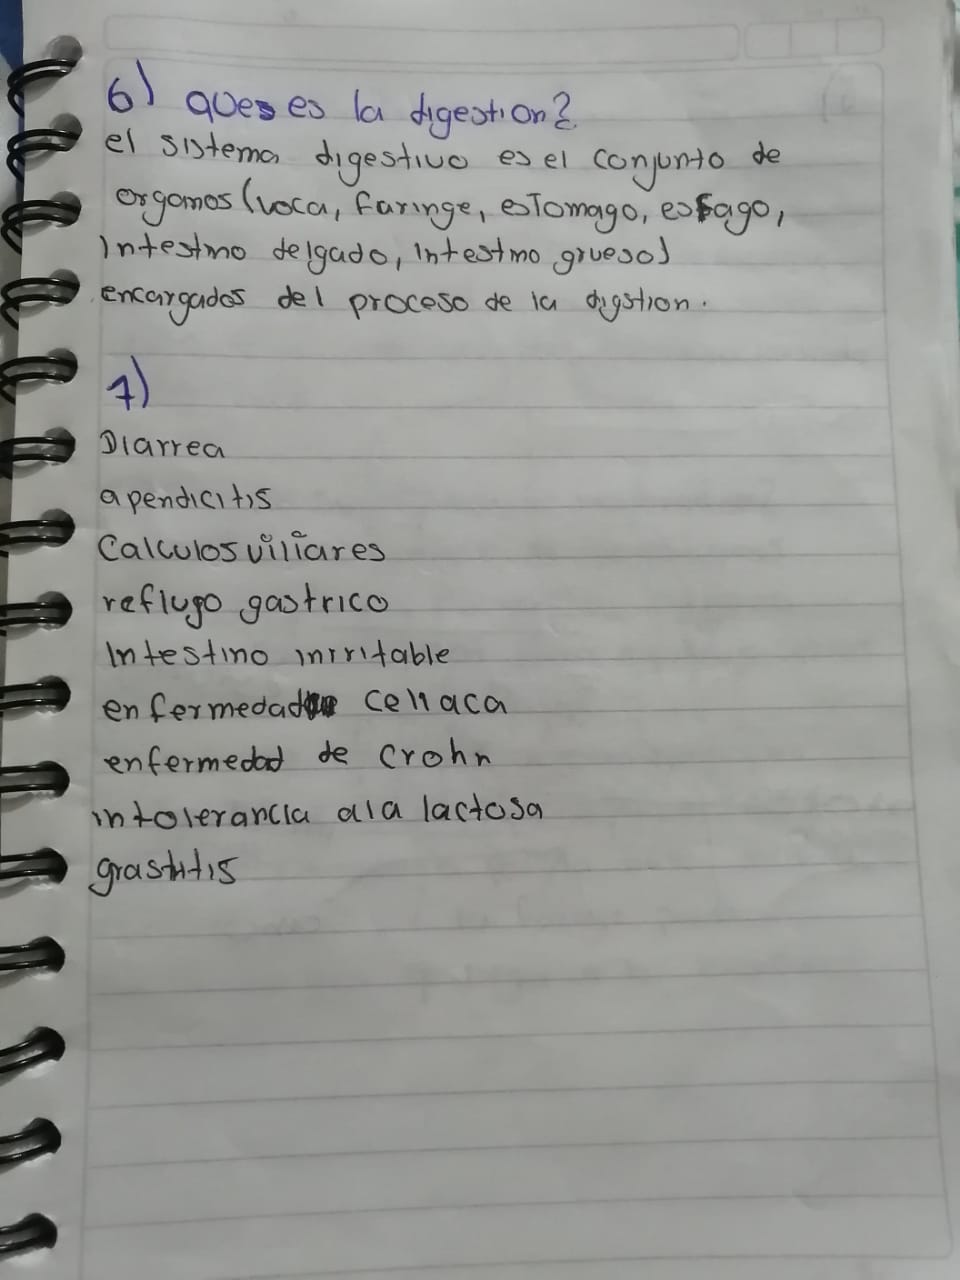 6) ques es la digestion?
el sistema digestivo es el conjunto de
orgamos (voca, faringe, esTomago, esfago,
intestmo delgado, intestmo grueso)
encargados del proceso de la digstion.
7)
Diarrea
apendicitis
Calculos viliares
reflugo gastrico
Intestino inrritable
enfermedad celiaca
enfermedad de crohn
intolerancia ala lactosa
grastitis